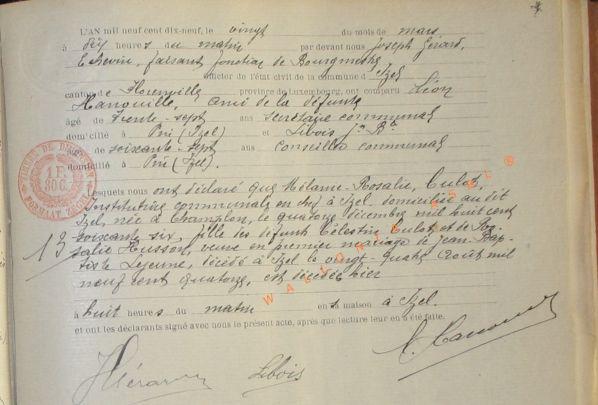 L'AN mil neuf cent dix-neuf, le vingt du mois de mars
à dix heures du matin par devant nous Joseph Gérard,
Echevin, faisant fonction de Bourgmestre
officier de l'état civil de la commune d' Izel
canton de Florenville province de Luxembourg, ont comparu Léon
Manouille, ami de la défunte
âgé de trente-sept ans secrétaire communal
domicilié à Pin (Izel) et Libois Jn Bte
de soixante-sept ans conseiller communal
domicilié à Pin (Izel).
Lesquels nous ont déclaré que Mélanie-Rosalie, Culot,
Institutrice communale en chef à Izel domiciliée au dit
Izel, née à Champlon, le quatorze décembre mil huit cent
13 soixante six, fille des défunts Célestin Culot et de Ro-
salie Husson, veuve en premier mariage de Jean-Bap-
tiste Lejeune, décédé à Izel le vingt-quatre août mil
neuf cent quatorze, est décédée hier
à huit heures du matin en sa maison à Izel.
et ont les déclarants signé avec nous le présent acte, après que lecture leur en a été faite.
Libois
TIMBRE DE DIMENSION
1 FR
30 C.